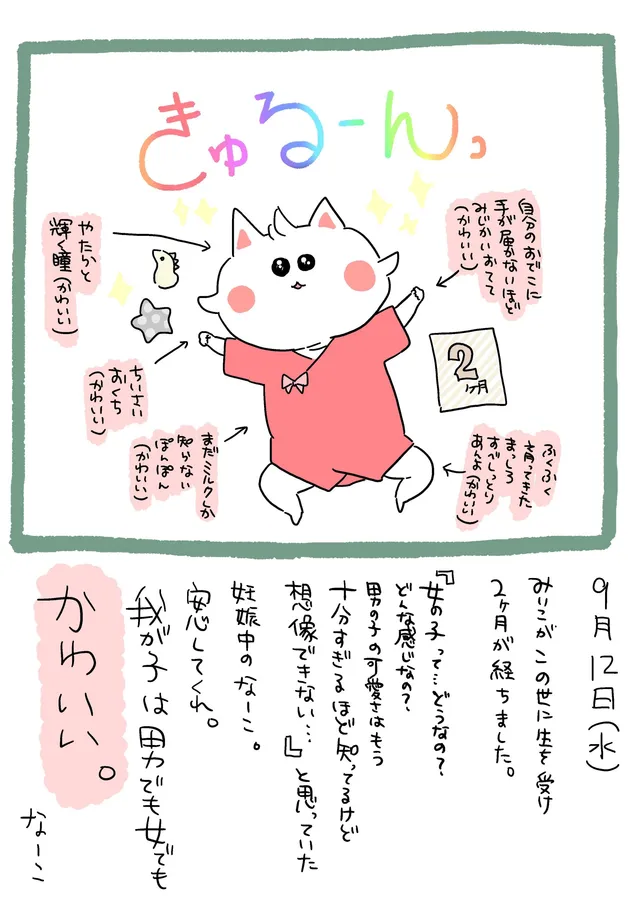 きゅるーんっ
自分のおでこに
手が届かないほど
みじかいおてて
(かわいい)
やたらと
輝く瞳(かわいい)
2
ヶ月
ちいさい
おくち
(かわいい)
まだミルクしか
知らない
ぽんぽん
(かわいい)
ふくふく
育ってきた
まっしろ
すべしっとり
あんよ(かわいい)
9月12日(水)
みいこがこの世に生を受け
2ヶ月が経ちました。
『女の子って…どうなの?
どんな感じなの?
男の子の可愛さはもう
十分すぎるほど知ってるけど
想像できない…』と思っていた
妊娠中のなーこ。
安心してくれ。
我が子は男でも女でも
かわいい。
なーこ